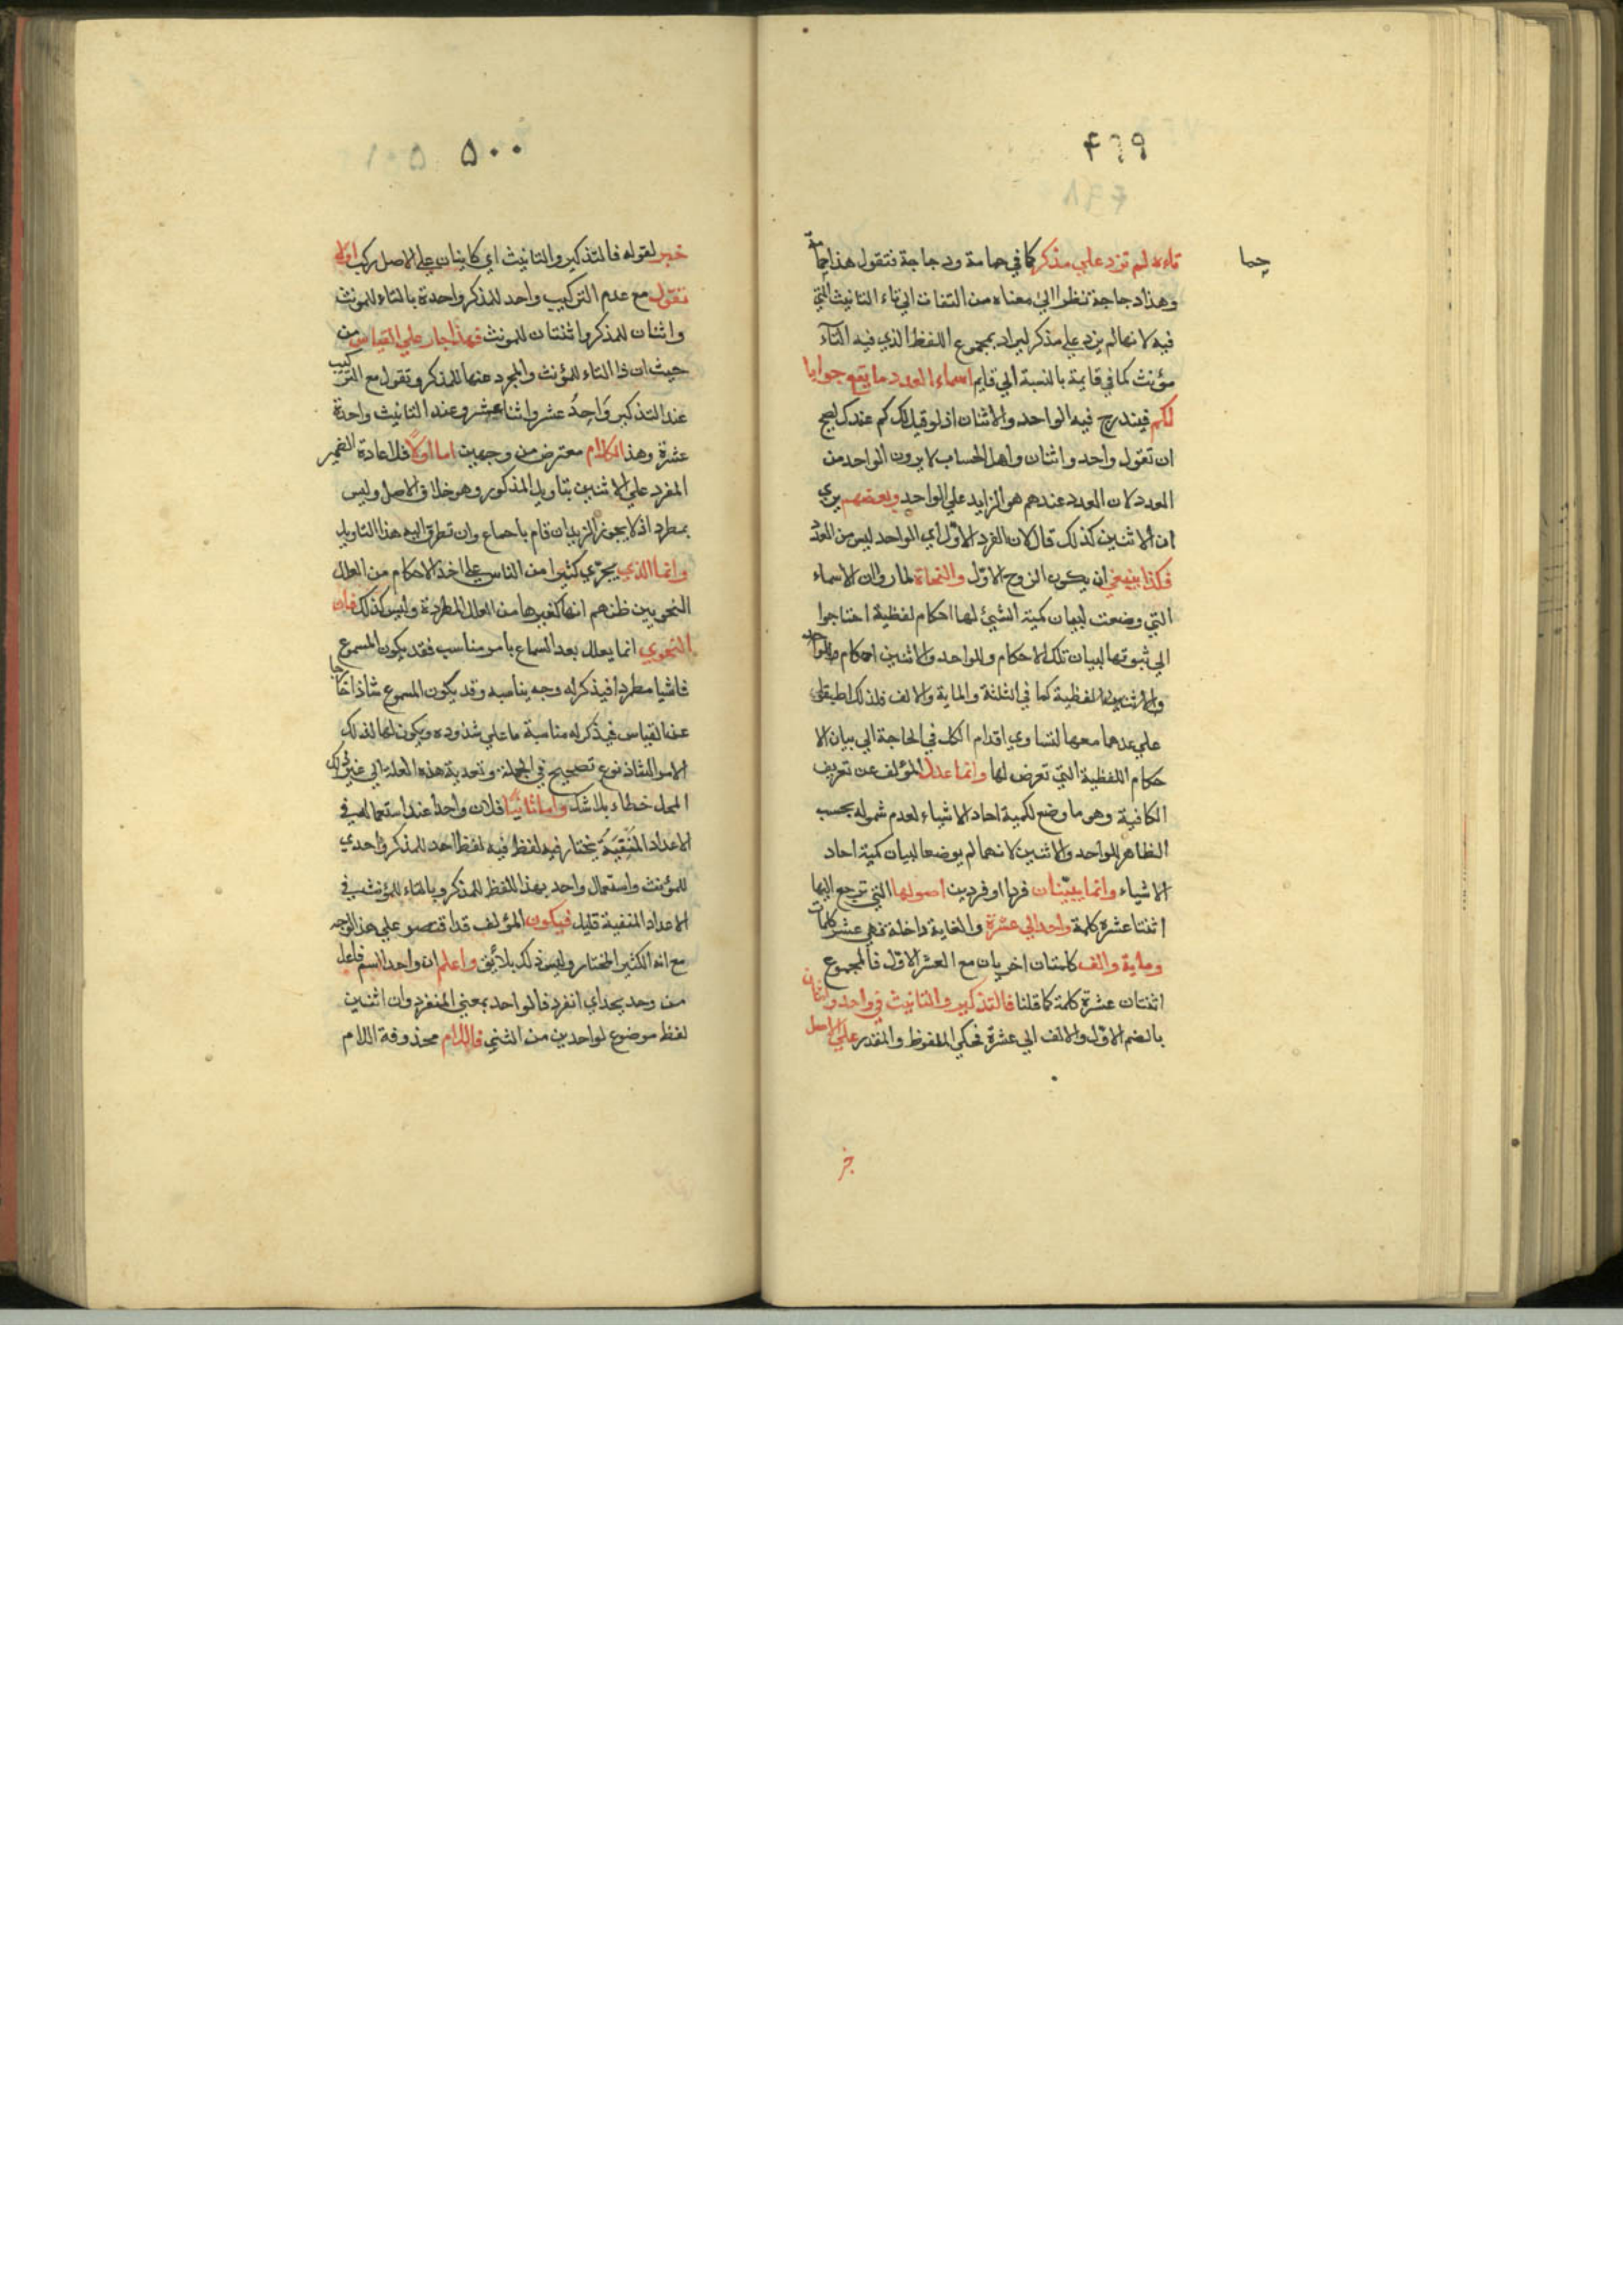 ٤٩٩
حما
تاءه لم تزد علي مذكر كما في حمامة ودجاجة فتقول هذا حمامة
وهذا دجاجة نظرا الي معناه من التفات الي تاء التانيث التي
فيه لانها لم يزد علي مذكر ليراد بمجموع اللفظ الذي فيه التآء
مؤنث كما في قايمة بالنسبة الي قايم اسماء العدد ما يقع جوابا
لكم فيندرج فيه الواحد والاثنان اذ لو قيل لك كم عندك يصح
ان تقول واحد واثنان واهل الحساب لا يرون الواحد من
العدد لان العدد عندهم هو الزايد علي الواحد وبعضهم يري
ان الاثنين كذلك قال لان الفرد الاول اي الواحد ليس من العدد
فكذا ينبغي ان يكون الزوج الاول والنحاة لما راوا ان الاسماء
التي وضعت لبيان كمية الشيئ لها احكام لفظية احتاجوا
الي ثبوتها لبيان تلك الاحكام وللواحد والاثنين احكام
والاثنين لفظية كما في الثلثة والماية والالف فلذلك اطبقوا
علي عدهما معها لتساوي اقدام الكل في الحاجة الي بيان الا
حكام اللفظية التي تعرض لها وانما عدل المؤلف عن تعريف
الكافية وهو ما وضع لكمية احاد الاشياء لعدم شموله بحسب
الظاهر للواحد والاثنين لانهما لم يوضعا لبيان كمية احاد
الاشياء وانما يبينان فردا او فردين اصولها التي ترجع اليها
اثنتا عشرة كلمة واحد الي عشرة والغاية داخلة فهي عشر كلمات
وماية والف كلمتان اخريان مع العشر الاول فالمجموع
اثنتان عشرة كلمة كما قلنا فالتذكير والتانيث في واحد واثنان
بالضم الاول والالف الي عشرة فحكي الملفوظ والمقدر علي الاصل
خبر
٥٠٠
خبر لقوله فالتذكير والتانيث اي كاينان علي الاصل ركب اولا
تقول مع عدم التركيب واحد للمذكر واحدة بالتاء للمونث
واثنان للمذكر واثنتان للمونث فهذا جار علي القياس من
حيث ان ذا التاء للمؤنث والمجرد عنها للمذكر وتقول مع التركيب
عند التذكير واحد عشر واثنا عشر وعند التانيث واحدة
عشرة وهذا الكلام معترض من وجهين اما اولا فلاعادة الضمير
المفرد علي الاثنين بتاويل المذكور وهو خلاف الاصل وليس
بمطرد اذ لا يجوز الزيدان قام باجماع وان تطرق اليه هذا التاويل
وانما الذي يجرّي كثيرا من الناس علي اخذ الاحكام من العلل
النحويين ظنهم انها كغيرها من العلل المطردة وليس كذلك فان
النحوي انما يعلل بعد السماع بامر مناسب فقد يكون المسموع
فاشيا مطردا فيذكر له وجه يناسبه وقد يكون المسموع شاذا خارجا
عن القياس فيذكر له مناسبة ما علي شذوذه ويكون لها لذلك
الامر الشاذ نوع تصحيح في الجملة وتعدية هذه العلة الي غير ذلك
المحل خطاء بلا شك واما ثانيًا فلان واحدا عند استعماله في
الاعداد المنيفة يختار فيه لفظ احد للمذكر واحدي
للمؤنث واستعمال واحد بهذا اللفظ للمذكر وبالتاء للمؤنث في
الاعداد المنيفة قليل فيكون المؤلف قد اقتصر علي هذا الوجه
مع انه الكثير المختار وليس ذلك بلائق واعلم ان واحد اسم فاعل
من وحد يحد اي انفرد فالواحد بمعني المنفرد وان اثنين
لفظ موضوع لواحدين من الثني فاللام محذوفة اللام